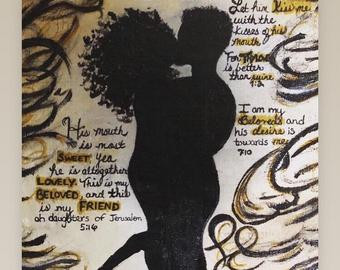 Let him Kiss me
with the
kisses of his
mouth
For Thy love
is better
than wine
1:2
I am my
Beloveds and
his desire is
towards me
7:10
His mouth
is most
SWEET yea
he is altogether
LOVELY. This is my
BELOVED, and this
is my FRIEND
oh daughters of Jerusalem
5:16